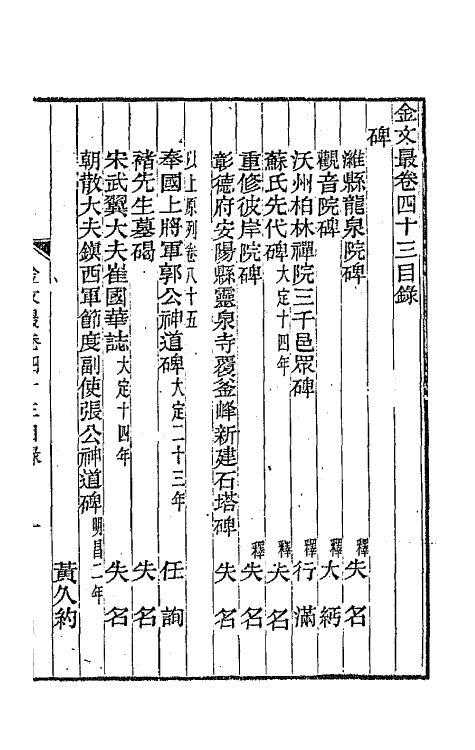 金文最卷四十三目錄
碑
濰縣龍泉院碑 釋失名
觀音院碑 釋大
沃州柏林禪院三千邑眾碑 釋行滿
蘇氏先代碑大定十四年 釋失名
重修彼岸院碑 釋失名
彰德府安陽縣靈泉寺覆釜峰新建石塔碑 失名
以上原列卷八十五
奉國上將軍郭公神道碑大定二十三年 任詢
褚先生墓碣 失名
宋武翼大夫崔國華誌大定十四年 失名
朝散大夫鎮西軍節度副使張公神道碑明昌二年
黃久約
金文最卷四十三目錄 一